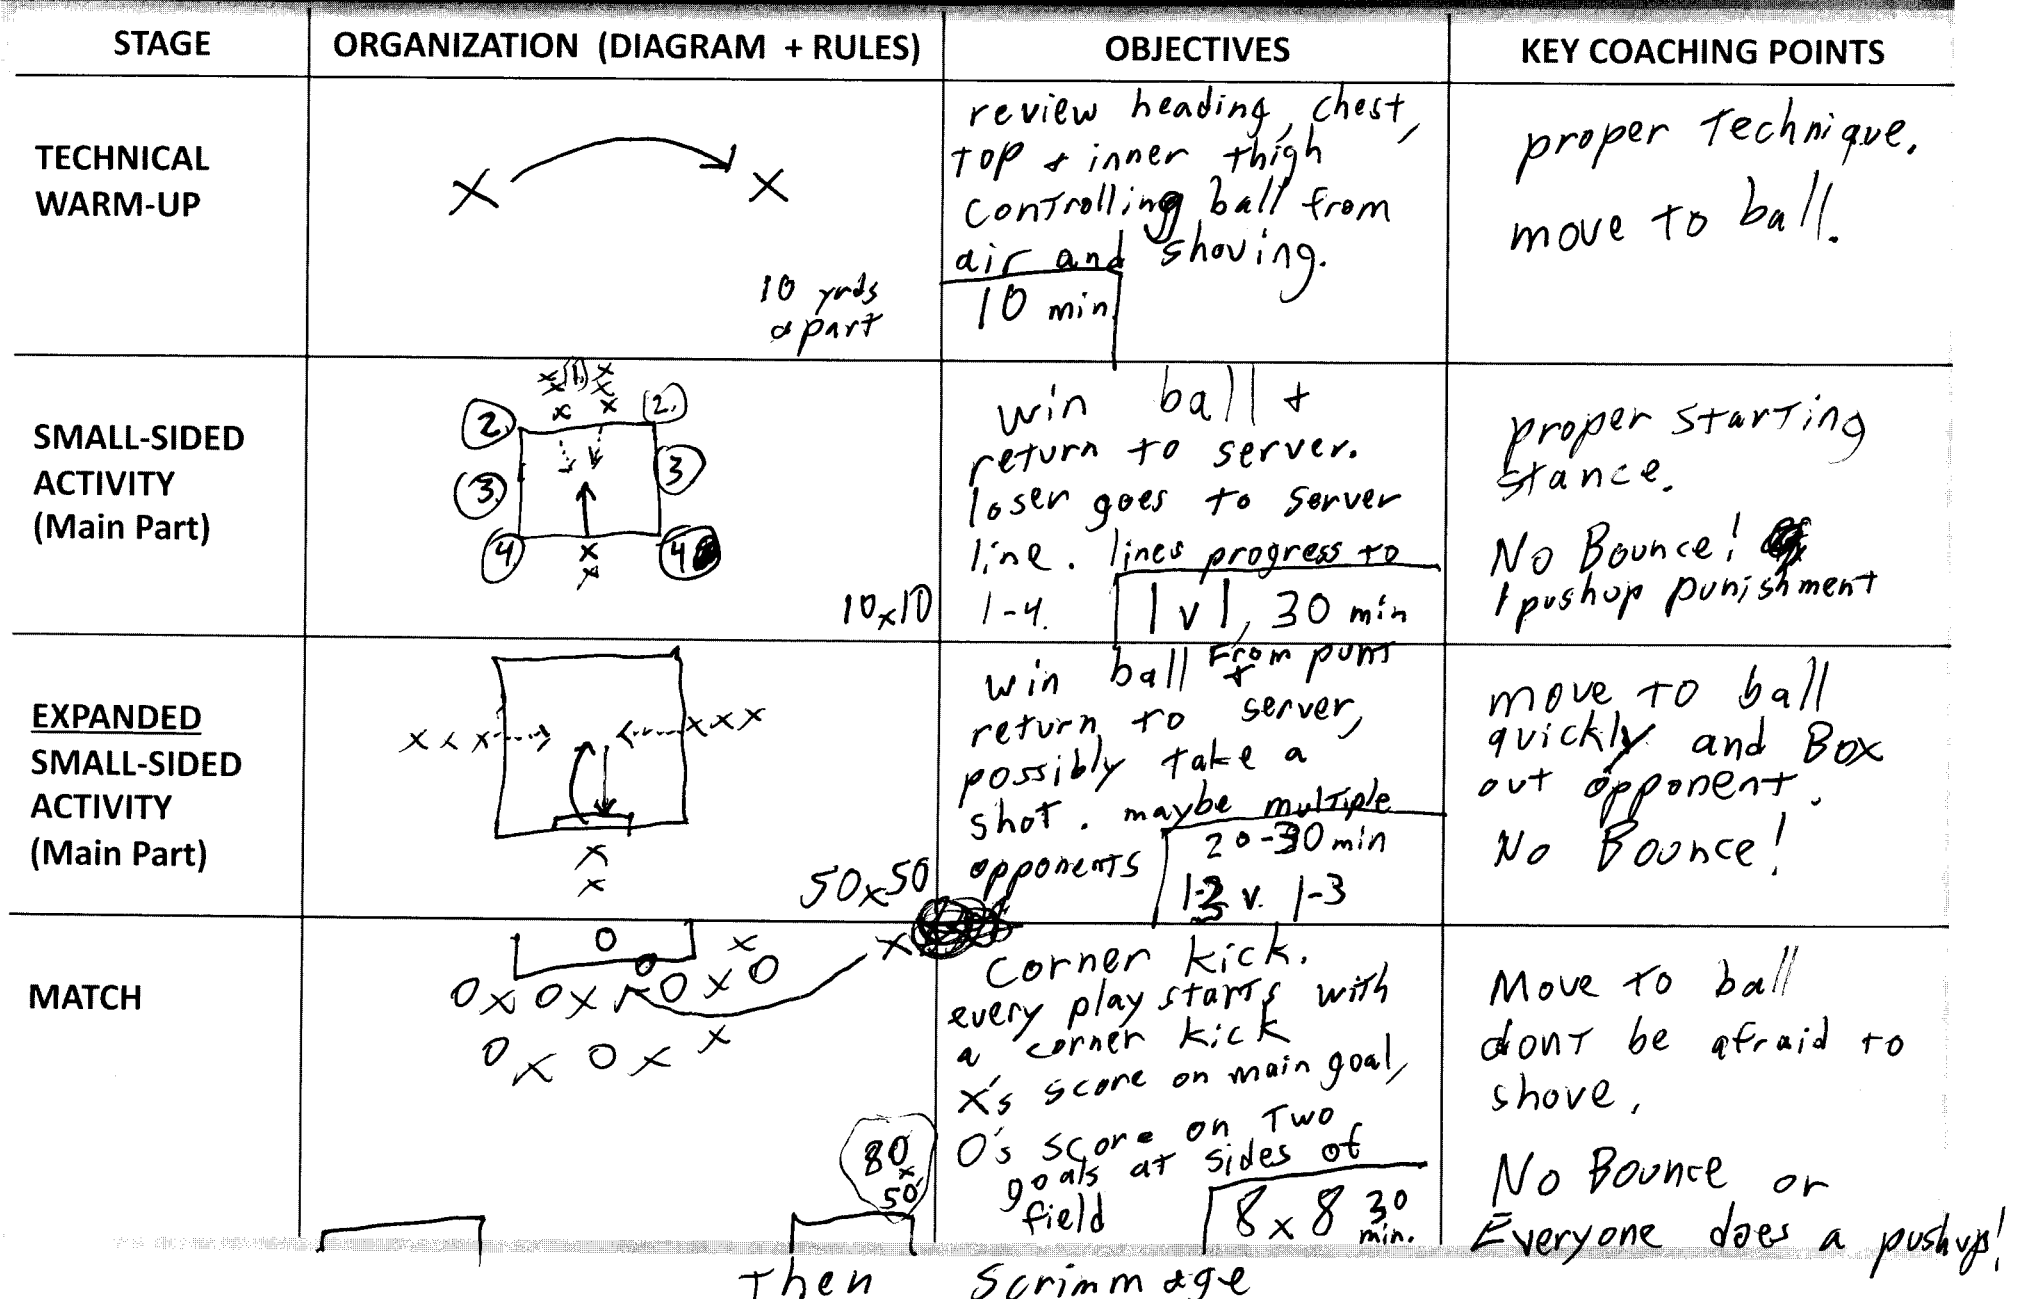 STAGE
ORGANIZATION (DIAGRAM + RULES)
OBJECTIVES
KEY COACHING POINTS
TECHNICAL
WARM-UP
X X
10 yrds
apart
review heading, chest,
top + inner thigh
controlling ball from
air and shoving.
10 min
proper technique.
move to ball.
SMALL-SIDED
ACTIVITY
(Main Part)
x 1. x
x x
2. x x 2.
3. 3
4 x 4
x
10x10
win ball +
return to server.
loser goes to server
line. lines progress to
1-4. 1 v 1, 30 min
proper starting
stance.
No Bounce!
1 pushup punishment
EXPANDED
SMALL-SIDED
ACTIVITY
(Main Part)
x x x x x x
x
x
50x50
win ball from punt +
return to server,
possibly take a
shot. maybe multiple
opponents
20-30 min
1-3 v. 1-3
move to ball
quickly and Box
out opponent.
No Bounce!
MATCH
O x x
O
O x O x O x O
O x O x x
80
x
50
Corner kick.
every play starts with
a corner kick
X's score on main goal,
O's score on two
goals at sides of
field
8 x 8 30
min.
Move to ball
dont be afraid to
shove.
No Bounce or
Everyone does a pushup!
Then Scrimmage